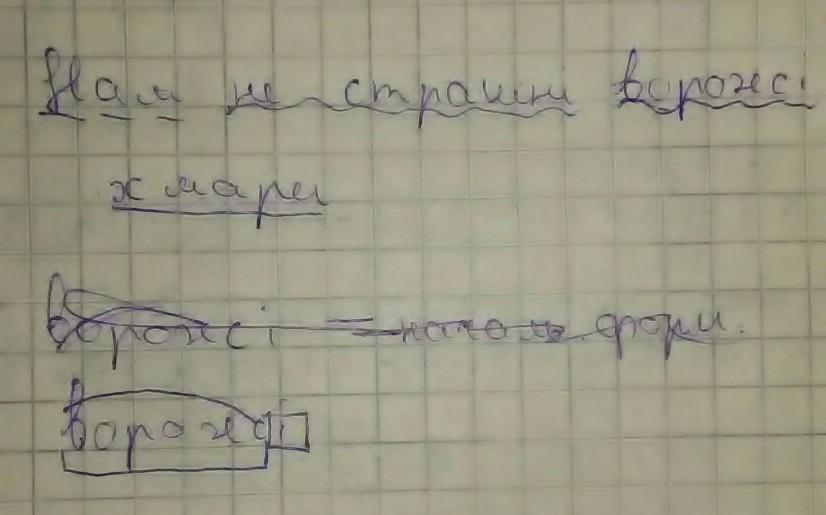 Нам не страшні ворожі
хмари
ворожі – початк. форм.
ворожі